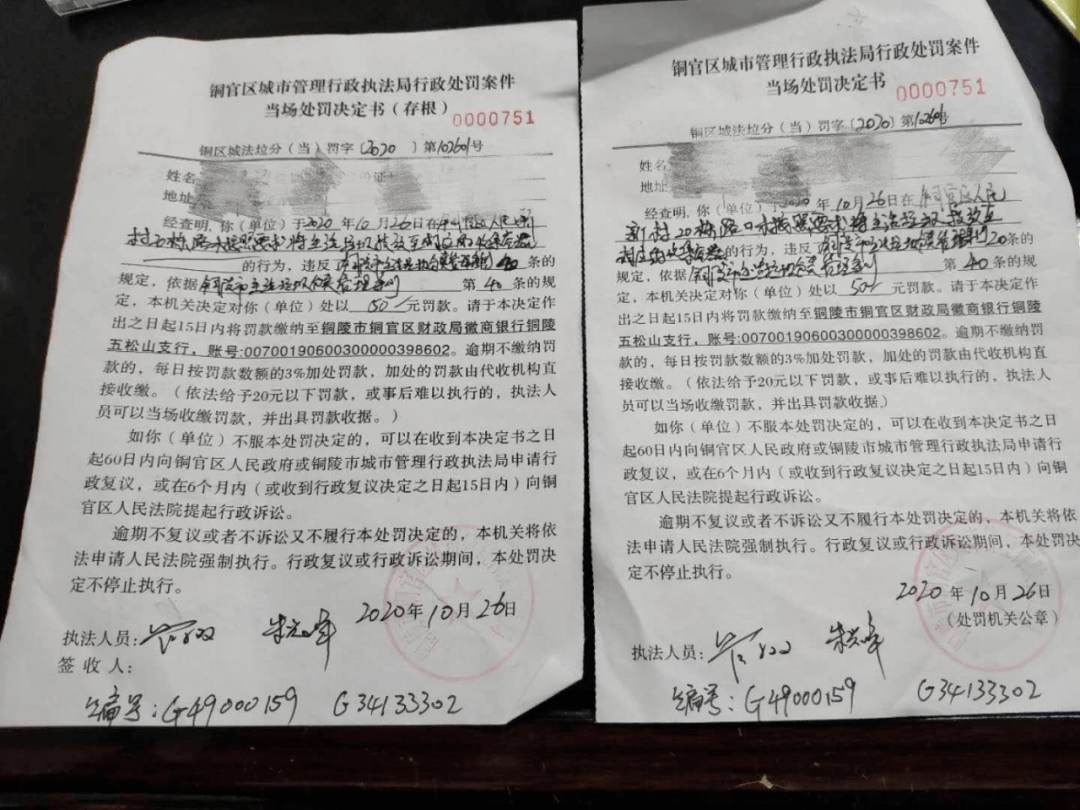 铜官区城市管理行政执法局行政处罚案件
当场处罚决定书（存根）
0000751
铜区城法垃分（当）罚字〔2020 〕第102601号
姓名
地址
经查明，你（单位）于2020年10月26日在铜官区人民新
村20栋路口未按照要求将生活垃圾投放至
的行为，违反 铜陵市生活垃圾分类管理条例 条的
规定，依据 铜陵市生活垃圾分类管理条例 第 40 条的规
定，本机关决定对你（单位）处以 50 元罚款。请于本决定作
出之日起15日内将罚款缴纳至铜陵市铜官区财政局徽商银行铜陵
五松山支行，账号:007001906003000000398602。逾期不缴纳罚
款的，每日按罚款数额的3%加处罚款，加处的罚款由代收机构直
接收缴。（依法给予20元以下罚款，或事后难以执行的，执法人
员可以当场收缴罚款，并出具罚款收据。）
如你（单位）不服本处罚决定的，可以在收到本决定书之日
起60日内向铜官区人民政府或铜陵市城市管理行政执法局申请行
政复议，或在6个月内（或收到行政复议决定之日起15日内）向铜
官区人民法院提起行政诉讼。
逾期不复议或者不诉讼又不履行本处罚决定的，本机关将依
法申请人民法院强制执行。行政复议或行政诉讼期间，本处罚决
定不停止执行。
2020年10月26日
执法人员：
签收人：
编号：G49000159 G34133302
铜官区城市管理行政执法局行政处罚案件
当场处罚决定书
0000751
铜区城法垃分（当）罚字〔2020〕第102601号
姓名
地址
经查明，你（单位）于2020年10月26日在 铜官区人民
新村20栋路口未按照要求将生活垃圾投放至
的行为，违反 铜陵市生活垃圾分类管理条例 20条的
规定，依据 铜陵市生活垃圾分类管理条例 第 40 条的规
定，本机关决定对你（单位）处以 50 元罚款。请于本决定作
出之日起15日内将罚款缴纳至铜陵市铜官区财政局徽商银行铜陵
五松山支行，账号:007001906003000000398602。逾期不缴纳罚
款的，每日按罚款数额的3%加处罚款，加处的罚款由代收机构直
接收缴。（依法给予20元以下罚款，或事后难以执行的，执法人
员可以当场收缴罚款，并出具罚款收据。）
如你（单位）不服本处罚决定的，可以在收到本决定书之日
起60日内向铜官区人民政府或铜陵市城市管理行政执法局申请行
政复议，或在6个月内（或收到行政复议决定之日起15日内）向铜
官区人民法院提起行政诉讼。
逾期不复议或者不诉讼又不履行本处罚决定的，本机关将依
法申请人民法院强制执行。行政复议或行政诉讼期间，本处罚决
定不停止执行。
2020年10月26日
（处罚机关公章）
执法人员：
编号：G49000159 G34133302